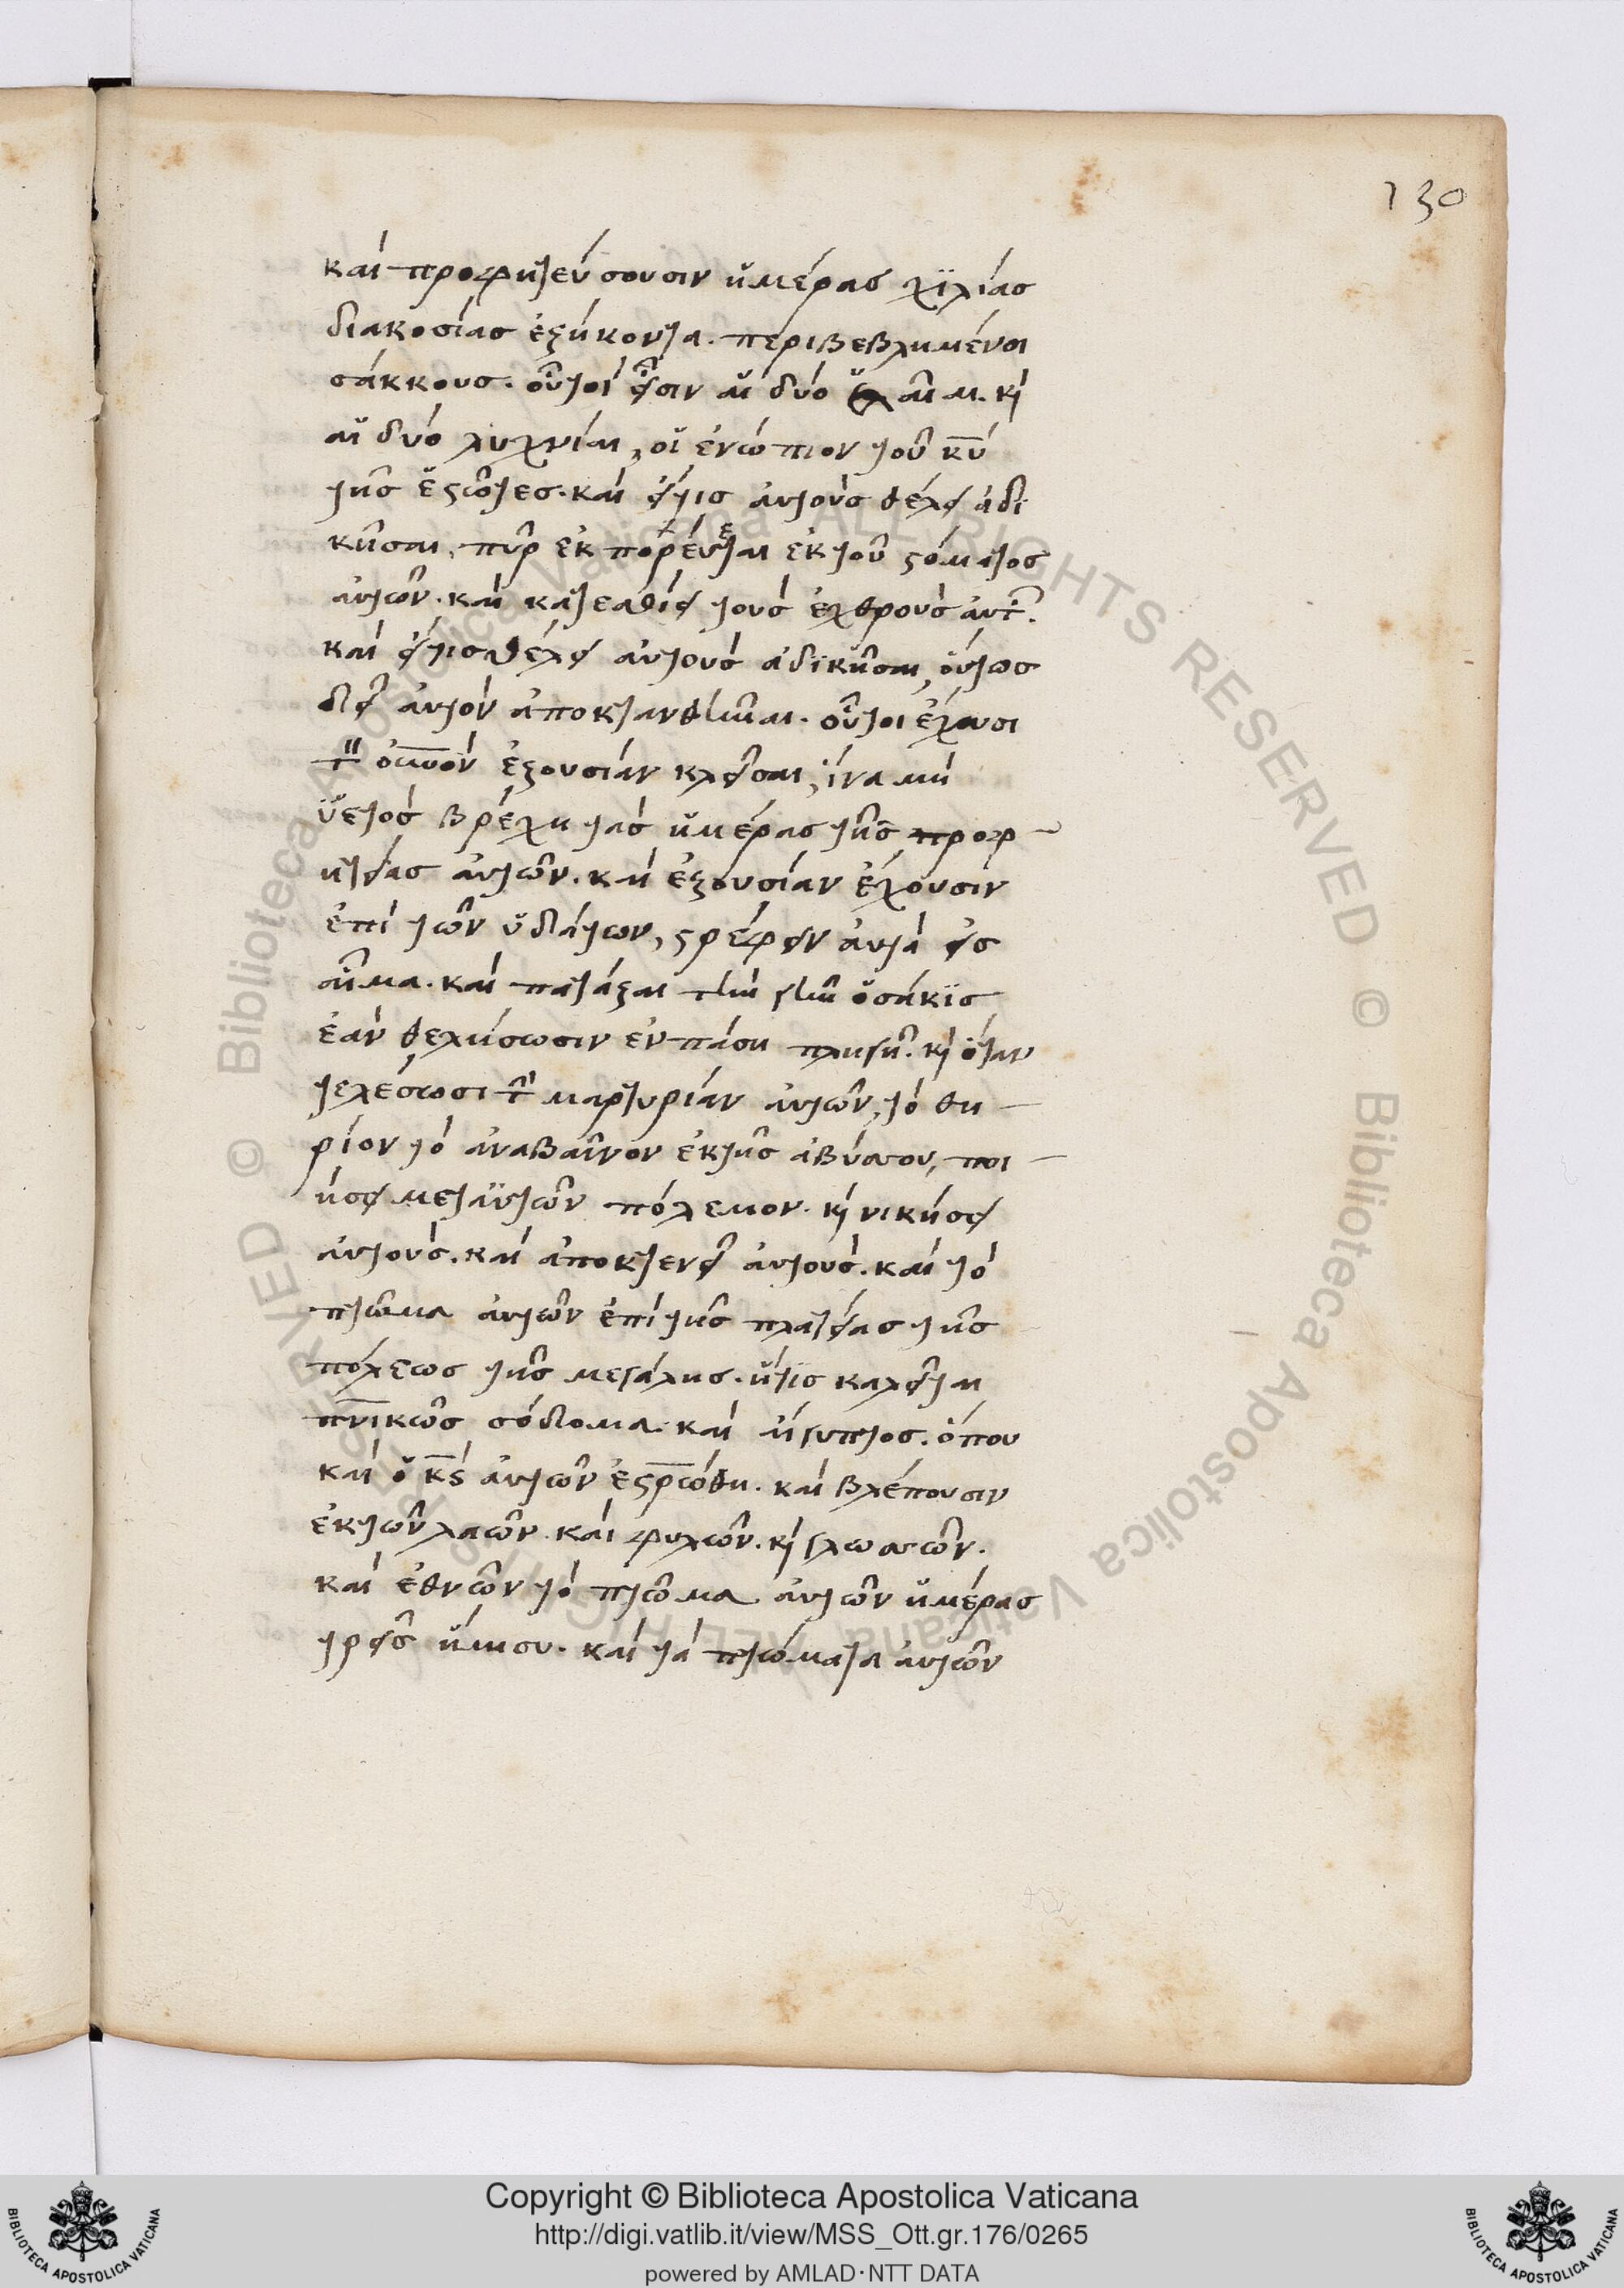 130
καὶ προφητεύσουσιν ἡμέρας χϊλίας
διακοσίας ἑξήκοντα. περιβεβλημένοι
σάκκους. οὗτοί εἰσιν αἱ δύο ἐλαῖαι. κὶ
αἱ δυό λυχνίαι, οἱ ἐνώπιον τοῦ κ̅υ̅
τῆς ἑστῶτες. καὶ εἴτις αὐτοὺς θέλει ἀδι
κῆσαι, πῦρ ἐκπορεύεται ἐκ τοῦ στόματος
αὐτῶν. καὶ κατεσθίει τοὺς ἐχθροὺς αὐτῶν.
καὶ εἴτις θέλει αὐτοὺς ἀδϊκῆσαι, οὕτως
δεῖ αὐτὸν ἀποκτανθῆναι. οὗτοι ἔχουσι
τὴν ο̅υ̅νο̅ν̅ ἐξουσίαν κλεῖσαι, ἵνα μὴ
ὑετὸς βρέχη τὰς ἡμέρας τῆς προφ
ητείας αὐτῶν. καὶ ἐξουσίαν ἔχουσιν
ἐπὶ τῶν ὑδάτων, στρέφειν αὐτὰ εἰς
αἷμα. καὶ πατάξαι τὴν γῆν ὁσάκϊς
ἐὰν θελήσωσιν ἐν πάση πληγῆ. κὶ ὅταν
τελέσωσι τὴν μαρτυρίαν αὐτῶν, τὸ θη
ρίον τὸ ἀναβαῖνον ἐκ τῆς ἀβύσσου, ποι
ήσει μεταὐτῶν πόλεμον. κὶ νικήσει
αὐτούς. καὶ ἀποκτενεῖ αὐτούς. καὶ τὸ
πτῶμα αὐτῶν ἐπὶ τῆς πλατείας τῆς
πόλεως τῆς μεγάλης. ἥτϊς καλεῖται
π̅ν̅ικῶς σόδομα. καὶ αἴγυπτος. ὅπου
καὶ ὁ κ̅ς̅ αὐτῶν ἐσ̅ρ̅ώθη. καὶ βλέπουσιν
ἐκ τῶν λαῶν. καὶ φυλῶν. κὶ γλωσσῶν.
καὶ ἐθνῶν τὸ πτῶμα αὐτῶν ἡμέρας
τρεῖς ἥμισυ. καὶ τὰ πτώματα αὐτῶν
Copyright © Biblioteca Apostolica Vaticana
http://digi.vatlib.it/view/MSS_Ott.gr.176/0265
powered by AMLAD·NTT DATA